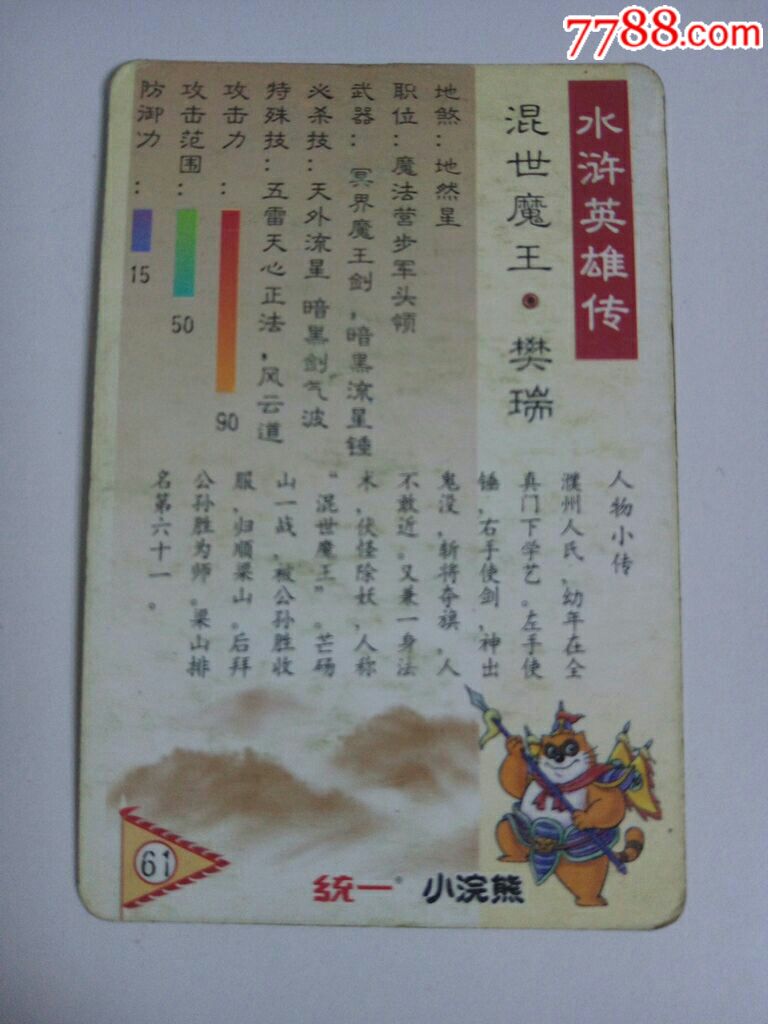 7788.com
水浒英雄传
混世魔王·樊瑞
地煞：地然星
职位：魔法营步军头领
武器：冥界魔王剑，暗黑流星锤
必杀技：天外流星 暗黑剑气波
特殊技：五雷天心正法，风云道
攻击力：
90
攻击范围：
50
防御力：
15
人物小传
濮州人氏，幼年在全
真门下学艺。左手使
锤，右手使剑，神出
鬼没，斩将夺旗，人
不敢近。又兼一身法
术，伏怪除妖，人称
“混世魔王”。芒砀
山一战，被公孙胜收
服，归顺梁山。后拜
公孙胜为师。梁山排
名第六十一。
61
统一® 小浣熊